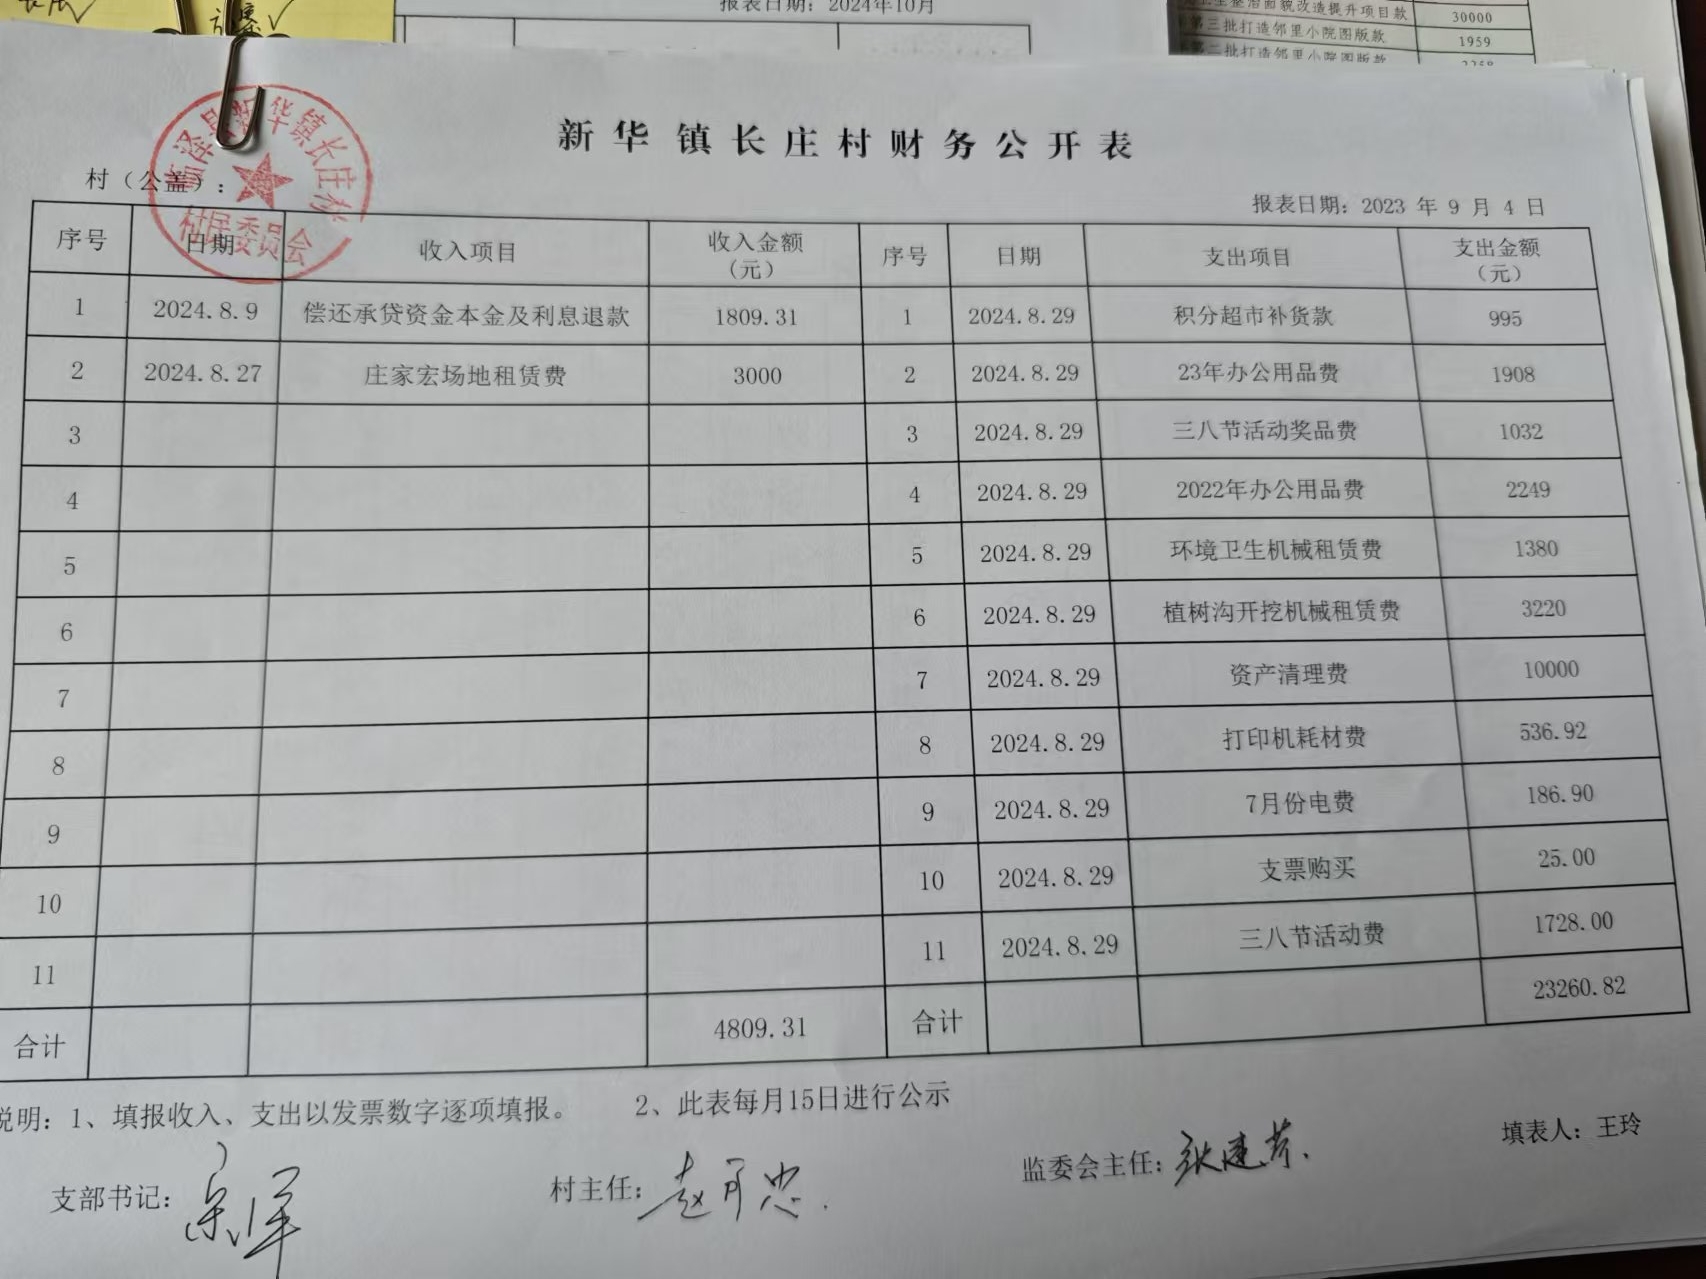 报表日期：2024年10月
30000
第三批打造邻里小院图版款 1959
第二批打造邻里小院图版款
新华镇长庄村财务公开表
村（公盖）：
新华镇长庄村
村民委员会
报表日期：2023 年 9 月 4 日
序号 日期 收入项目 收入金额（元） 序号 日期 支出项目 支出金额（元）
1 2024.8.9 偿还承贷资金本金及利息退款 1809.31 1 2024.8.29 积分超市补货款 995
2 2024.8.27 庄家宏场地租赁费 3000 2 2024.8.29 23年办公用品费 1908
3 3 2024.8.29 三八节活动奖品费 1032
4 4 2024.8.29 2022年办公用品费 2249
5 5 2024.8.29 环境卫生机械租赁费 1380
6 6 2024.8.29 植树沟开挖机械租赁费 3220
7 7 2024.8.29 资产清理费 10000
8 8 2024.8.29 打印机耗材费 536.92
9 9 2024.8.29 7月份电费 186.90
10 10 2024.8.29 支票购买 25.00
11 11 2024.8.29 三八节活动费 1728.00
合计 4809.31 合计 23260.82
说明：1、填报收入、支出以发票数字逐项填报。 2、此表每月15日进行公示
支部书记： 村主任： 监委会主任：张建芳. 填表人：王玲